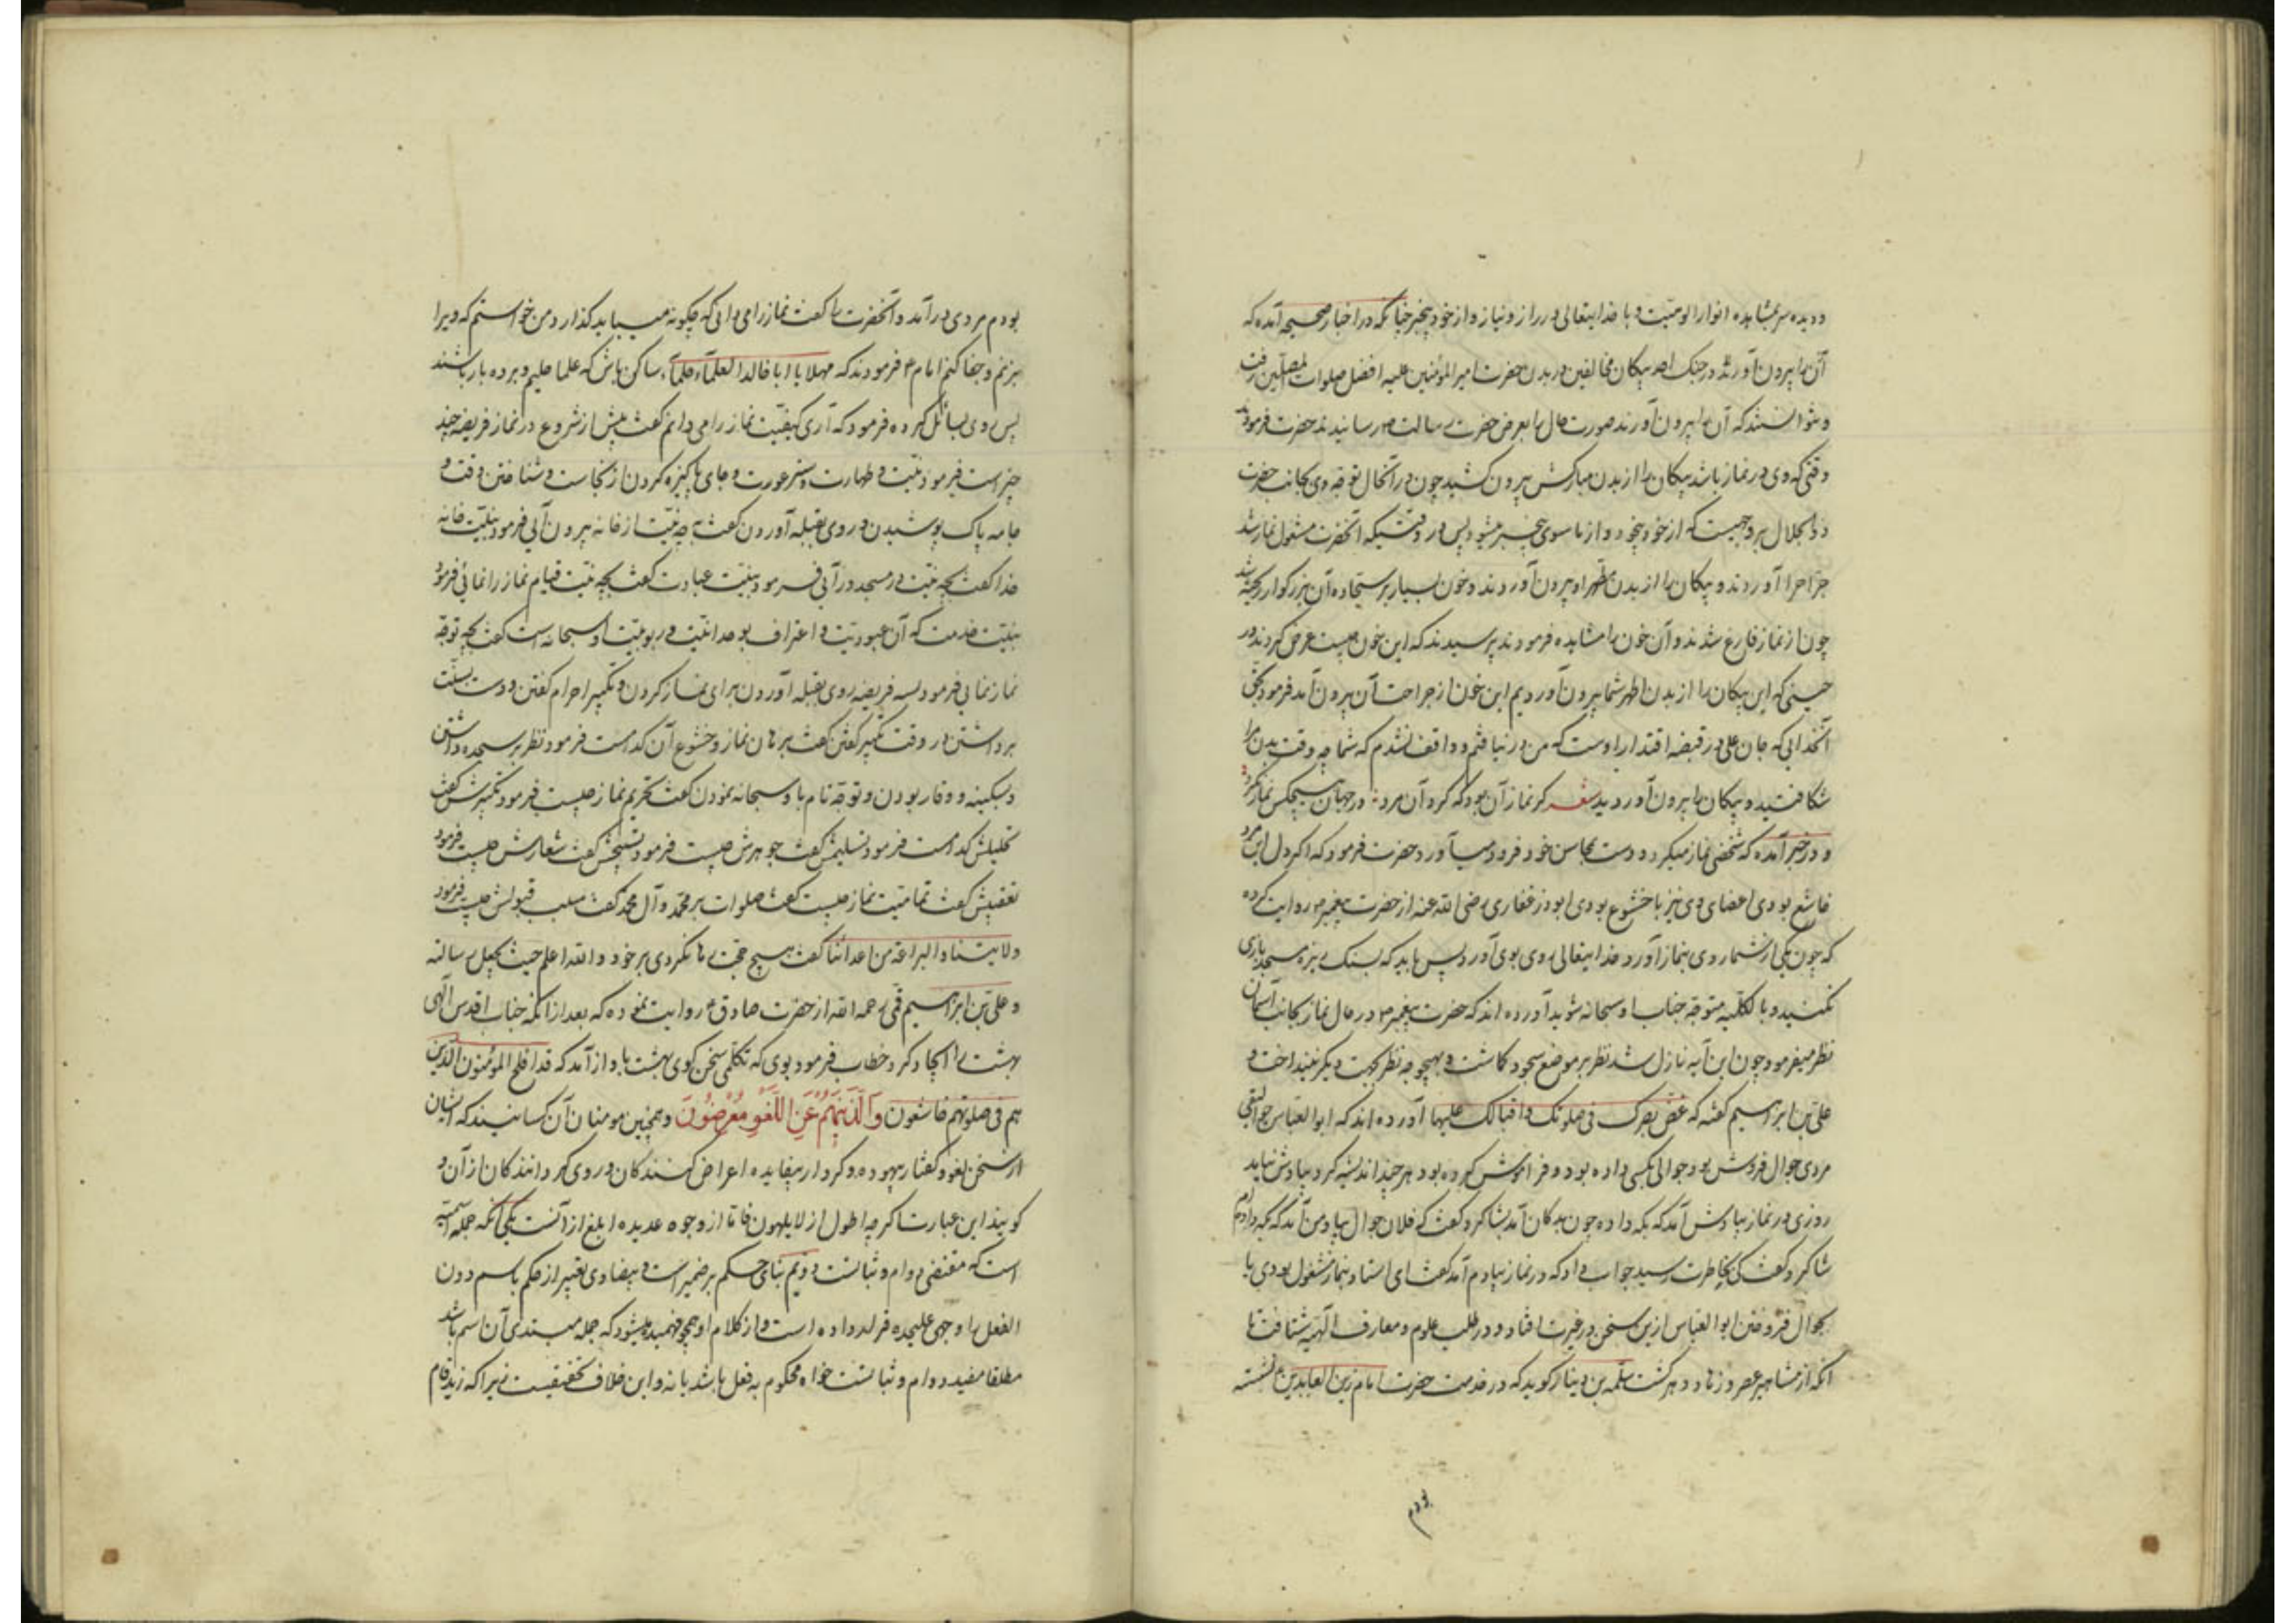 ودیده سر بمشاهده انوار الوهیت و با خدایتعالی در راز و نیاز و از خود بیخبر چنانکه در اخبار صحیحه آمده که
در جنک احد پیکان مخالفین در بدن حضرت امیر المؤمنین علیه افضل صلوات المصلین رفت
و نتوانستند که آن را بیرون آورند صورت حال را بعرض حضرت رسالت ص رسانیدند حضرت فرمود
وقتی که وی در نماز باشد پیکان را از بدن مبارکش بیرون کشید چون در آنحال توجه وی بجانب حضرت
ذو الجلال بروجهیست که از خود بیخود و از ما سوی بیخبر میشود پس در وقتیکه آنحضرت مشغول نماز شد
جراح را آوردند و پیکان را از بدن مطهر او بیرون آوردند و خون بسیار بر سجاده آن بزرکوار ریخته شد
چون از نماز فارغ شدند و آن خون را مشاهده فرمودند پرسیدند که این خون چیست عرض کردند در
حینی که این پیکان را از بدن اطهر شما بیرون آوردیم این خون از جراحت آن بیرون آمد فرمود بحق
آنخدایی که جان علی در قبضه اقتدار اوست که من در نیافتم و واقف نشدم که شما چه وقت بدن مرا
شکافتید و پیکان را بیرون آوردید شعر کر نماز آن بود که کرد آن مرد در جهان هیچکس نماز نکرد
و در خبر آمده که شخصی نماز میکرد و دست بمحاسن خود فرود میآورد حضرت فرمود که اکر دل این مرد
خاشع بودی اعضای وی نیز با خشوع بودی ابوذر غفاری رضی الله عنه از حضرت پیغمبر ص روایت کرده
که چون یکی از شما روی بنماز آورد خدایتعالی روی بوی آورد پس باید که بسنک ریزه مسجد بازی
نکنید و بالکلیه متوجه جناب او سبحانه شوید آورده اند که حضرت پیغمبر ص در حال نماز بجانب آسمان
نظر میفرمود چون این آیه نازل شد نظر بر موضع سجود کماشت و بهیچوجه نظر بجهت دیکر نینداخت و
علی بن ابراهیم کفته که غض بصرک فی صلوتک و اقبالک علیها آورده اند که ابو العباس جوالیقی
مردی جوال فروش بود جوالی بکسی داده بود و فراموش کرده بود هر چند اندیشه کرد بیادش نیامد
روزی در نماز بیادش آمد که بکه داده چون بدکان آمد بشاکرد کفت که فلان جوال بیاد من آمد که بکه دادم
شاکرد کفت کی بخاطرت رسید جواب داد که در نماز بیادم آمد کفت ای استاد بنماز مشغول بودی یا
بجوال فروختن ابو العباس ازین سخن در غیرت افتاد و در طلب علوم و معارف الهیه شتافت تا
آنکه از مشاهیر عصر و زهاد دهر کشت سلمه بن دینار کوید که در خدمت حضرت امام زین العابدین ع نشسته
بودم
بودم مردی در آمد و آنحضرت را کفت نماز را می دانی که چکونه میباید کذارد من خواستم که ویرا
بزنم و جفا کنم امام ع فرمودند که مهلا یا ابا خالد العلمآء حلمآء ساکن باش که علما حلیم و بردبار باشند
پس روی بسائل کرده فرمود که آری کیفیت نماز را می دانم کفت پیش از شروع در نماز فریضه چند
چیز است فرمود نیت و طهارت و ستر عورت و جای پاکیزه کردن از نجاست و شناختن وقت و
جامه پاک پوشیدن و روی بقبله آوردن کفت بچه نیت از خانه بیرون آیی فرمود بنیت خانه
خدا کفت بچه نیت در مسجد در آیی فرمود بنیت عبادت کفت بچه نیت قیام نماز را نمائی فرمود
بنیت خدمت که آن عبودیت و اعتراف بوحدانیت و ربوبیت او سبحانه است کفت بچه توجه
نماز نمایی فرمود بسه فریضه روی بقبله آوردن برای نماز کردن و تکبیر احرام کفتن و دست بسنت
برداشتن در وقت تکبیر کفتن کفت برهان نماز و خشوع آن کدامست فرمود نظر بر سجده داشتن
و بسکینه و وقار بودن و توجه تام باو سبحانه نمودن کفت تحریم نماز چیست فرمود تکبیرش کفت
تحلیلش کدامست فرمود تسلیمش کفت جوهرش چیست فرمود تسبیحش کفت شعارش چیست فرمود
تعقیبش کفت تمامیت نماز چیست کفت صلوات بر محمد و آل محمد کفت سبب قبولش چیست فرمود
ولایتنا و البراءة من اعدائنا کفت هیچ حجت رها نکردی بر خود و الله اعلم حیث یجعل رسالته
و علی بن ابراهیم قمی رحمه الله از حضرت صادق ع روایت نموده که بعد از انکه جناب اقدس الهی
بهشت را ایجاد کرد خطاب فرمود بوی که تکلمی سخن کوی بهشت باواز آمد که قد افلح المؤمنون الذین
هم فی صلوتهم خاشعون وَالَّذِینَ هُمْ عَنِ اللَّغْوِ مُعْرِضُونَ و همچنین مومنان آن کسانیند که ایشان
از سخن لغو و کفتار بیهوده و کردار بیفایده اعراض کنندکان و روی کردانندکان از آن و
کویند این عبارت اکرچه اطول از لا یلهون فاما از وجوه عدیده ابلغ از آنست یکی آنکه جمله اسمیه
است که مقتضی دوام و ثباتست دویم بنای حکم بر ضمیر است و بیضاوی تعبیر از حکم باسم دون
الفعل را وجهی علیحده قرار داده است و از کلام او همچو فهمیده میشود که جمله مبتدای آن اسم باشد
مطلقا مفید دوام و ثباتست خواه محکوم به فعل باشد یا نه و این خلاف تحقیقیست زیرا که زید قام